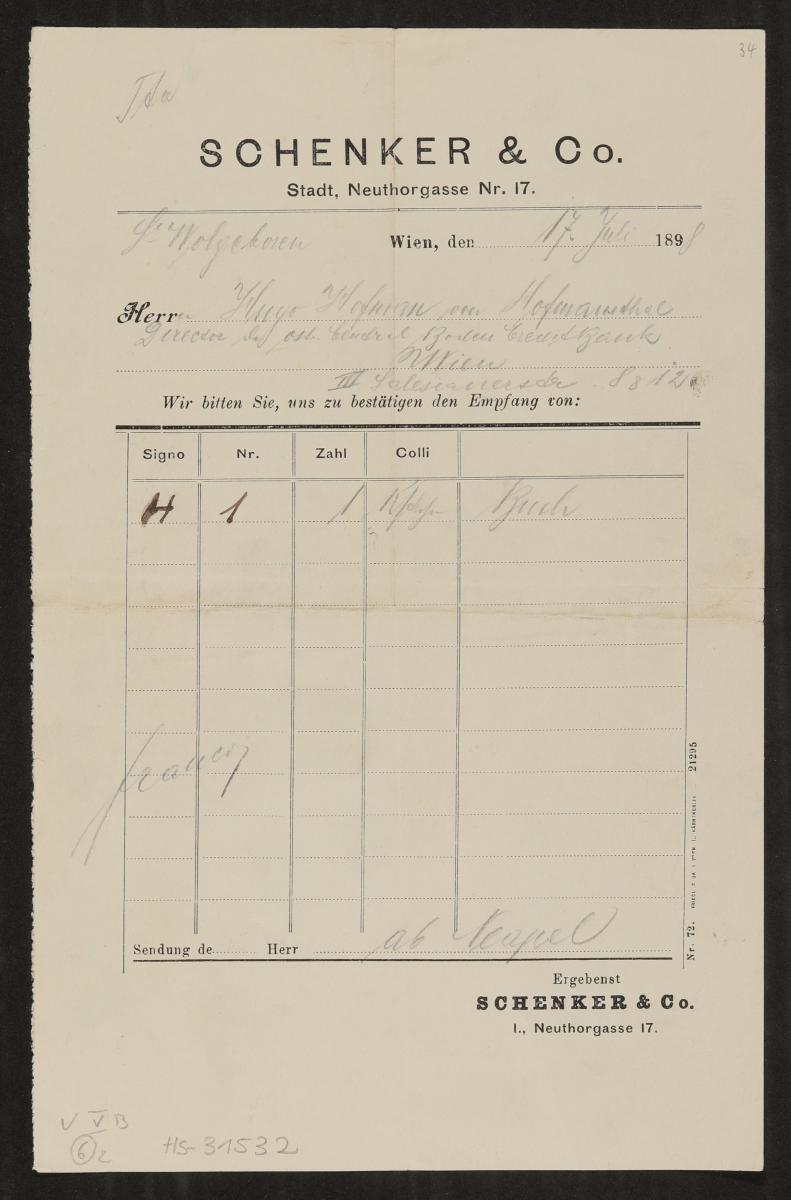 34
SCHENKER & Co.
Stadt, Neuthorgasse Nr. 17.
Sr Wolgeboren
Wien, den 17. Juli 1898
Herrn Hugo Hofman von Hofmannsthal
Director der öst. Central Boden Credit Bank
Wien
III Salesianer 8 12
Wir bitten Sie, uns zu bestätigen den Empfang von:
Signo Nr. Zahl Colli
H 1 1 Buch
franco
21295
Nr. 72.
Sendung de Herr ab Neapel
Ergebenst
SCHENKER & Co.
I., Neuthorgasse 17.
V V B
6 2 HS-31532